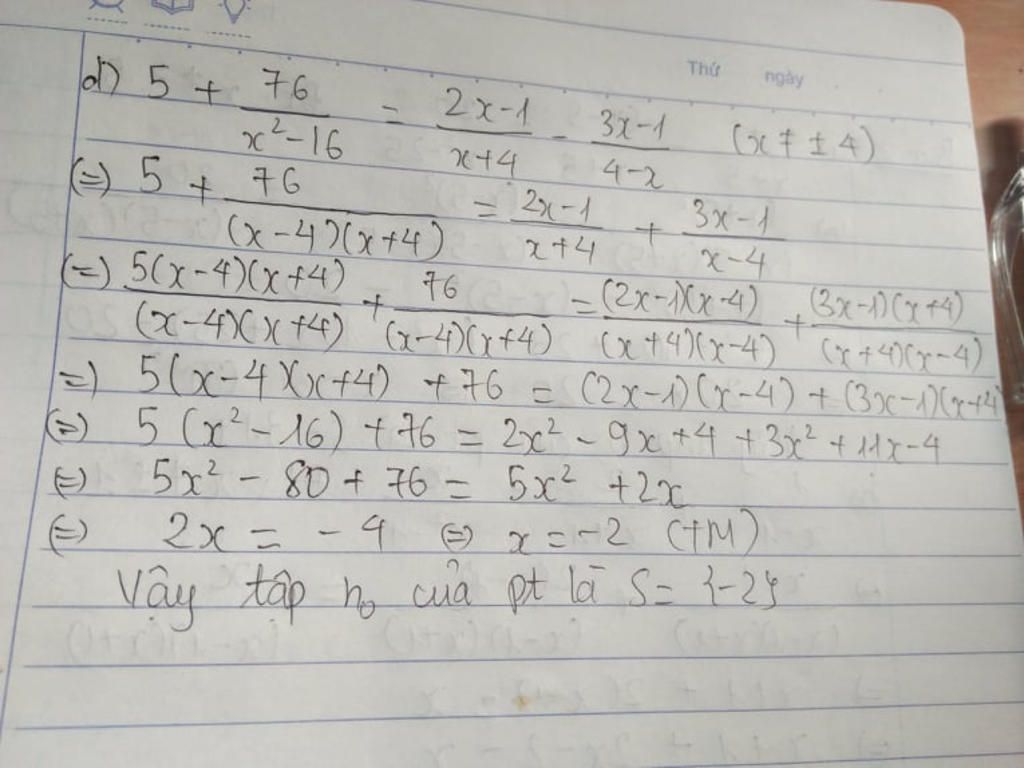 Thứ ngày
d) 5 + 76/(x² - 16) = (2x-1)/(x+4) - (3x-1)/(4-x) (x ≠ ± 4)
(=) 5 + 76/((x-4)(x+4)) = (2x-1)/(x+4) + (3x-1)/(x-4)
(=) 5(x-4)(x+4)/((x-4)(x+4)) + 76/((x-4)(x+4)) = (2x-1)(x-4)/((x+4)(x-4)) + (3x-1)(x+4)/((x+4)(x-4))
=) 5(x-4)(x+4) + 76 = (2x-1)(x-4) + (3x-1)(x+4)
(=) 5(x² - 16) + 76 = 2x² - 9x + 4 + 3x² + 11x - 4
(=) 5x² - 80 + 76 = 5x² + 2x
(=) 2x = -4 (=) x = -2 (TM)
Vậy tập n₀ của pt là S = {-2}